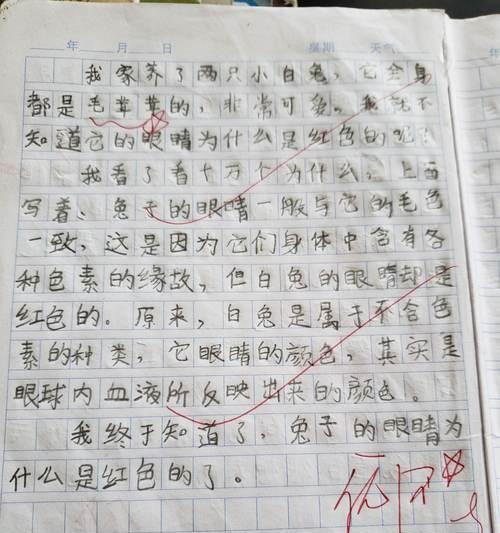 年 月 日 星期 天气
我家养了两只小白兔，它全身
都是毛茸茸的，非常可爱。我就不
知道它的眼睛为什么是红色的呢？
我看了看十万个为什么，上面
写着：兔子的眼睛一般与它的毛色
一致，这是因为它们身体中含有各
种色素的缘故，但白兔的眼睛却是
红色的。原来，白兔是属于不含色
素的种类，它眼睛的颜色，其实是
眼球内血液所反映出来的颜色。
我终于知道了，兔子的眼睛为
什么是红色的了。
优